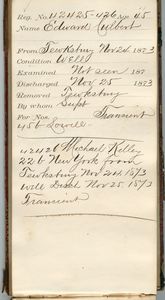 Reg. No. 42425-426 Age 45
Name Edward Culbert
From Tewksbury Nov 24 1873
Condition Well
Examined Not seen 187
Discharged Nov 25 1873
Removed Tewksbury
By whom Supt
For Nos. Transient
456 Lowell
42426 Michael Kelley
226 New York from
Tewksbury Nov 24 1873
Well Disch Nov 25 1873
Transient